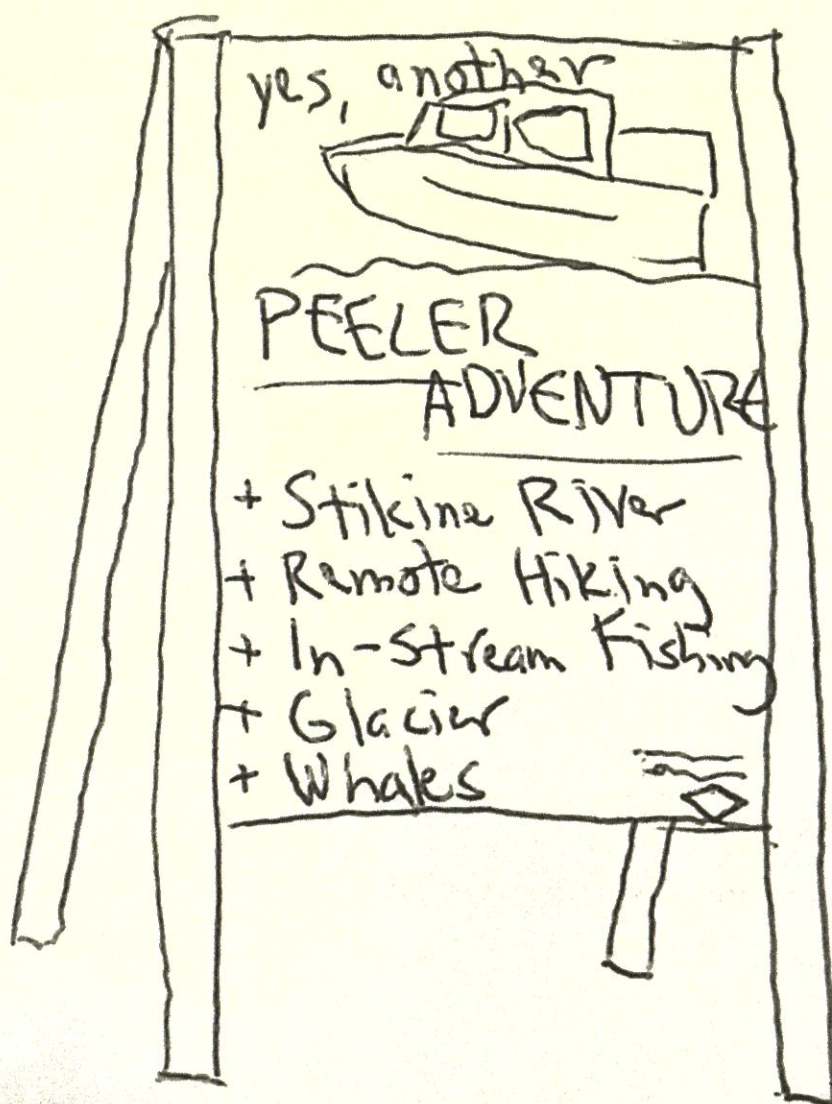 yes, another
PEELER
ADVENTURE
+ Stikine River
+ Remote Hiking
+ In-Stream Fishing
+ Glacier
+ Whales